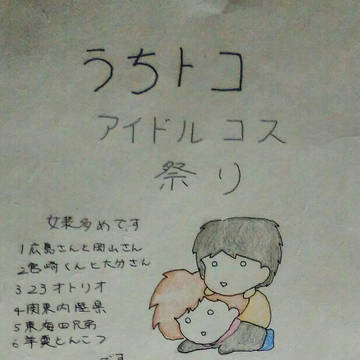 うちトコ
アイドルコス
祭り
女装多めです
1広島さんと岡山さん
2宮崎くんと大分さん
3 23オトリオ
4関東内陸県
5東海四兄弟
6年貢とんこつ
です